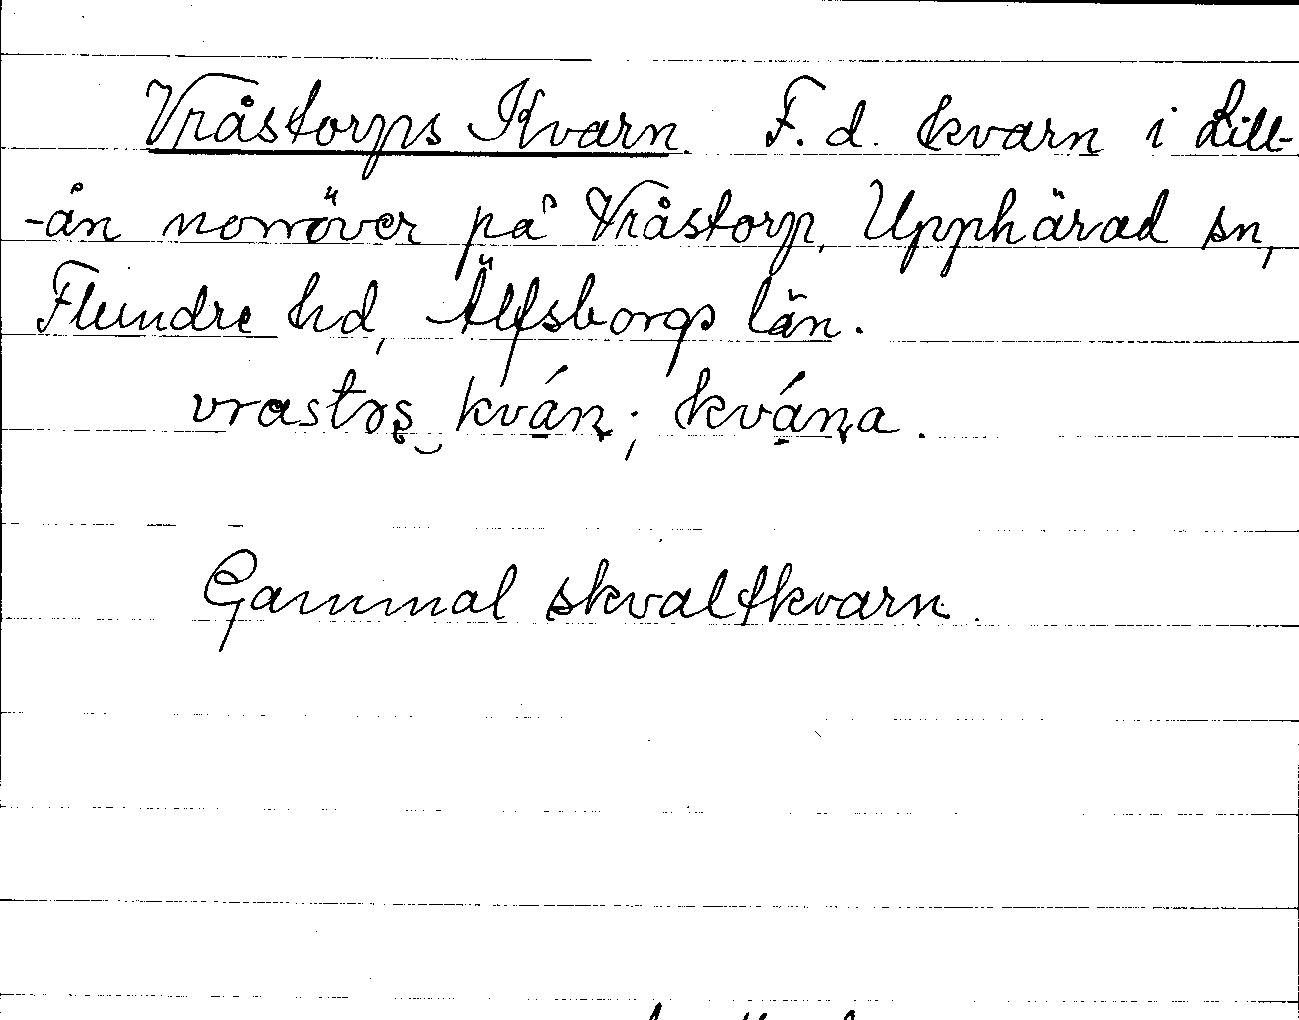 Vråstorps Kvarn. F. d. kvarn i Lill-
-ån norröver på Vråstorp, Upphärad sn,
Flundre hd, Älfsborgs län.
vrastos kván; kvána.
Gammal skvaltkvarn.